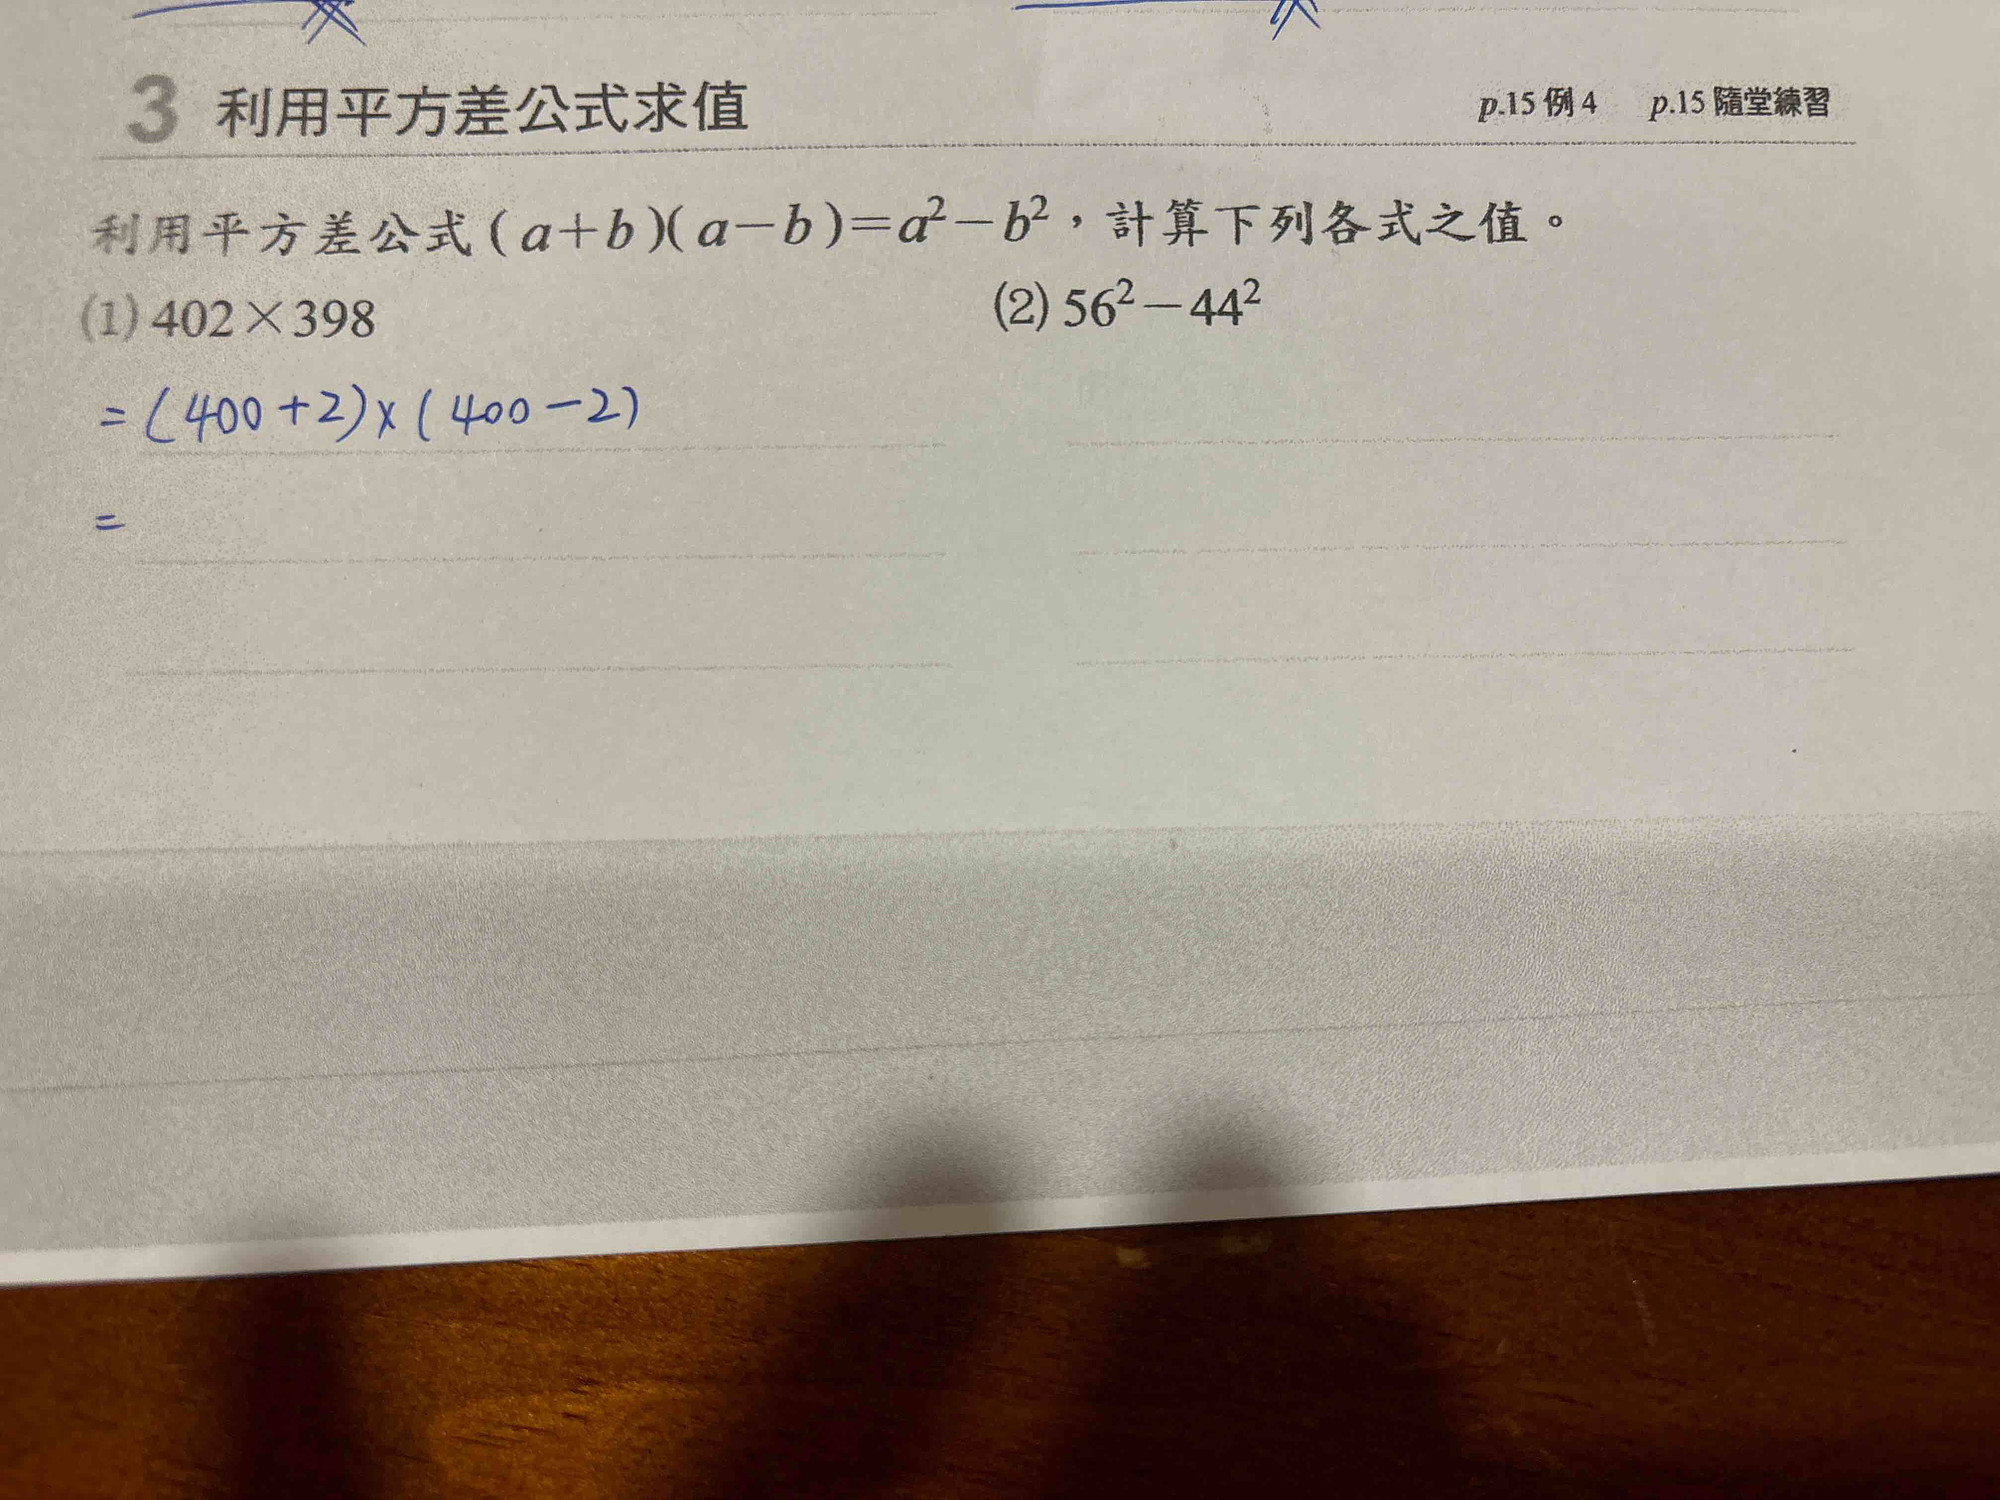 3 利用平方差公式求值 p.15 例 4 p.15 隨堂練習
利用平方差公式(a+b)(a-b)=a²-b²,計算下列各式之值。
(1) 402×398 (2) 56²-44²
=(400+2)×(400-2)
=